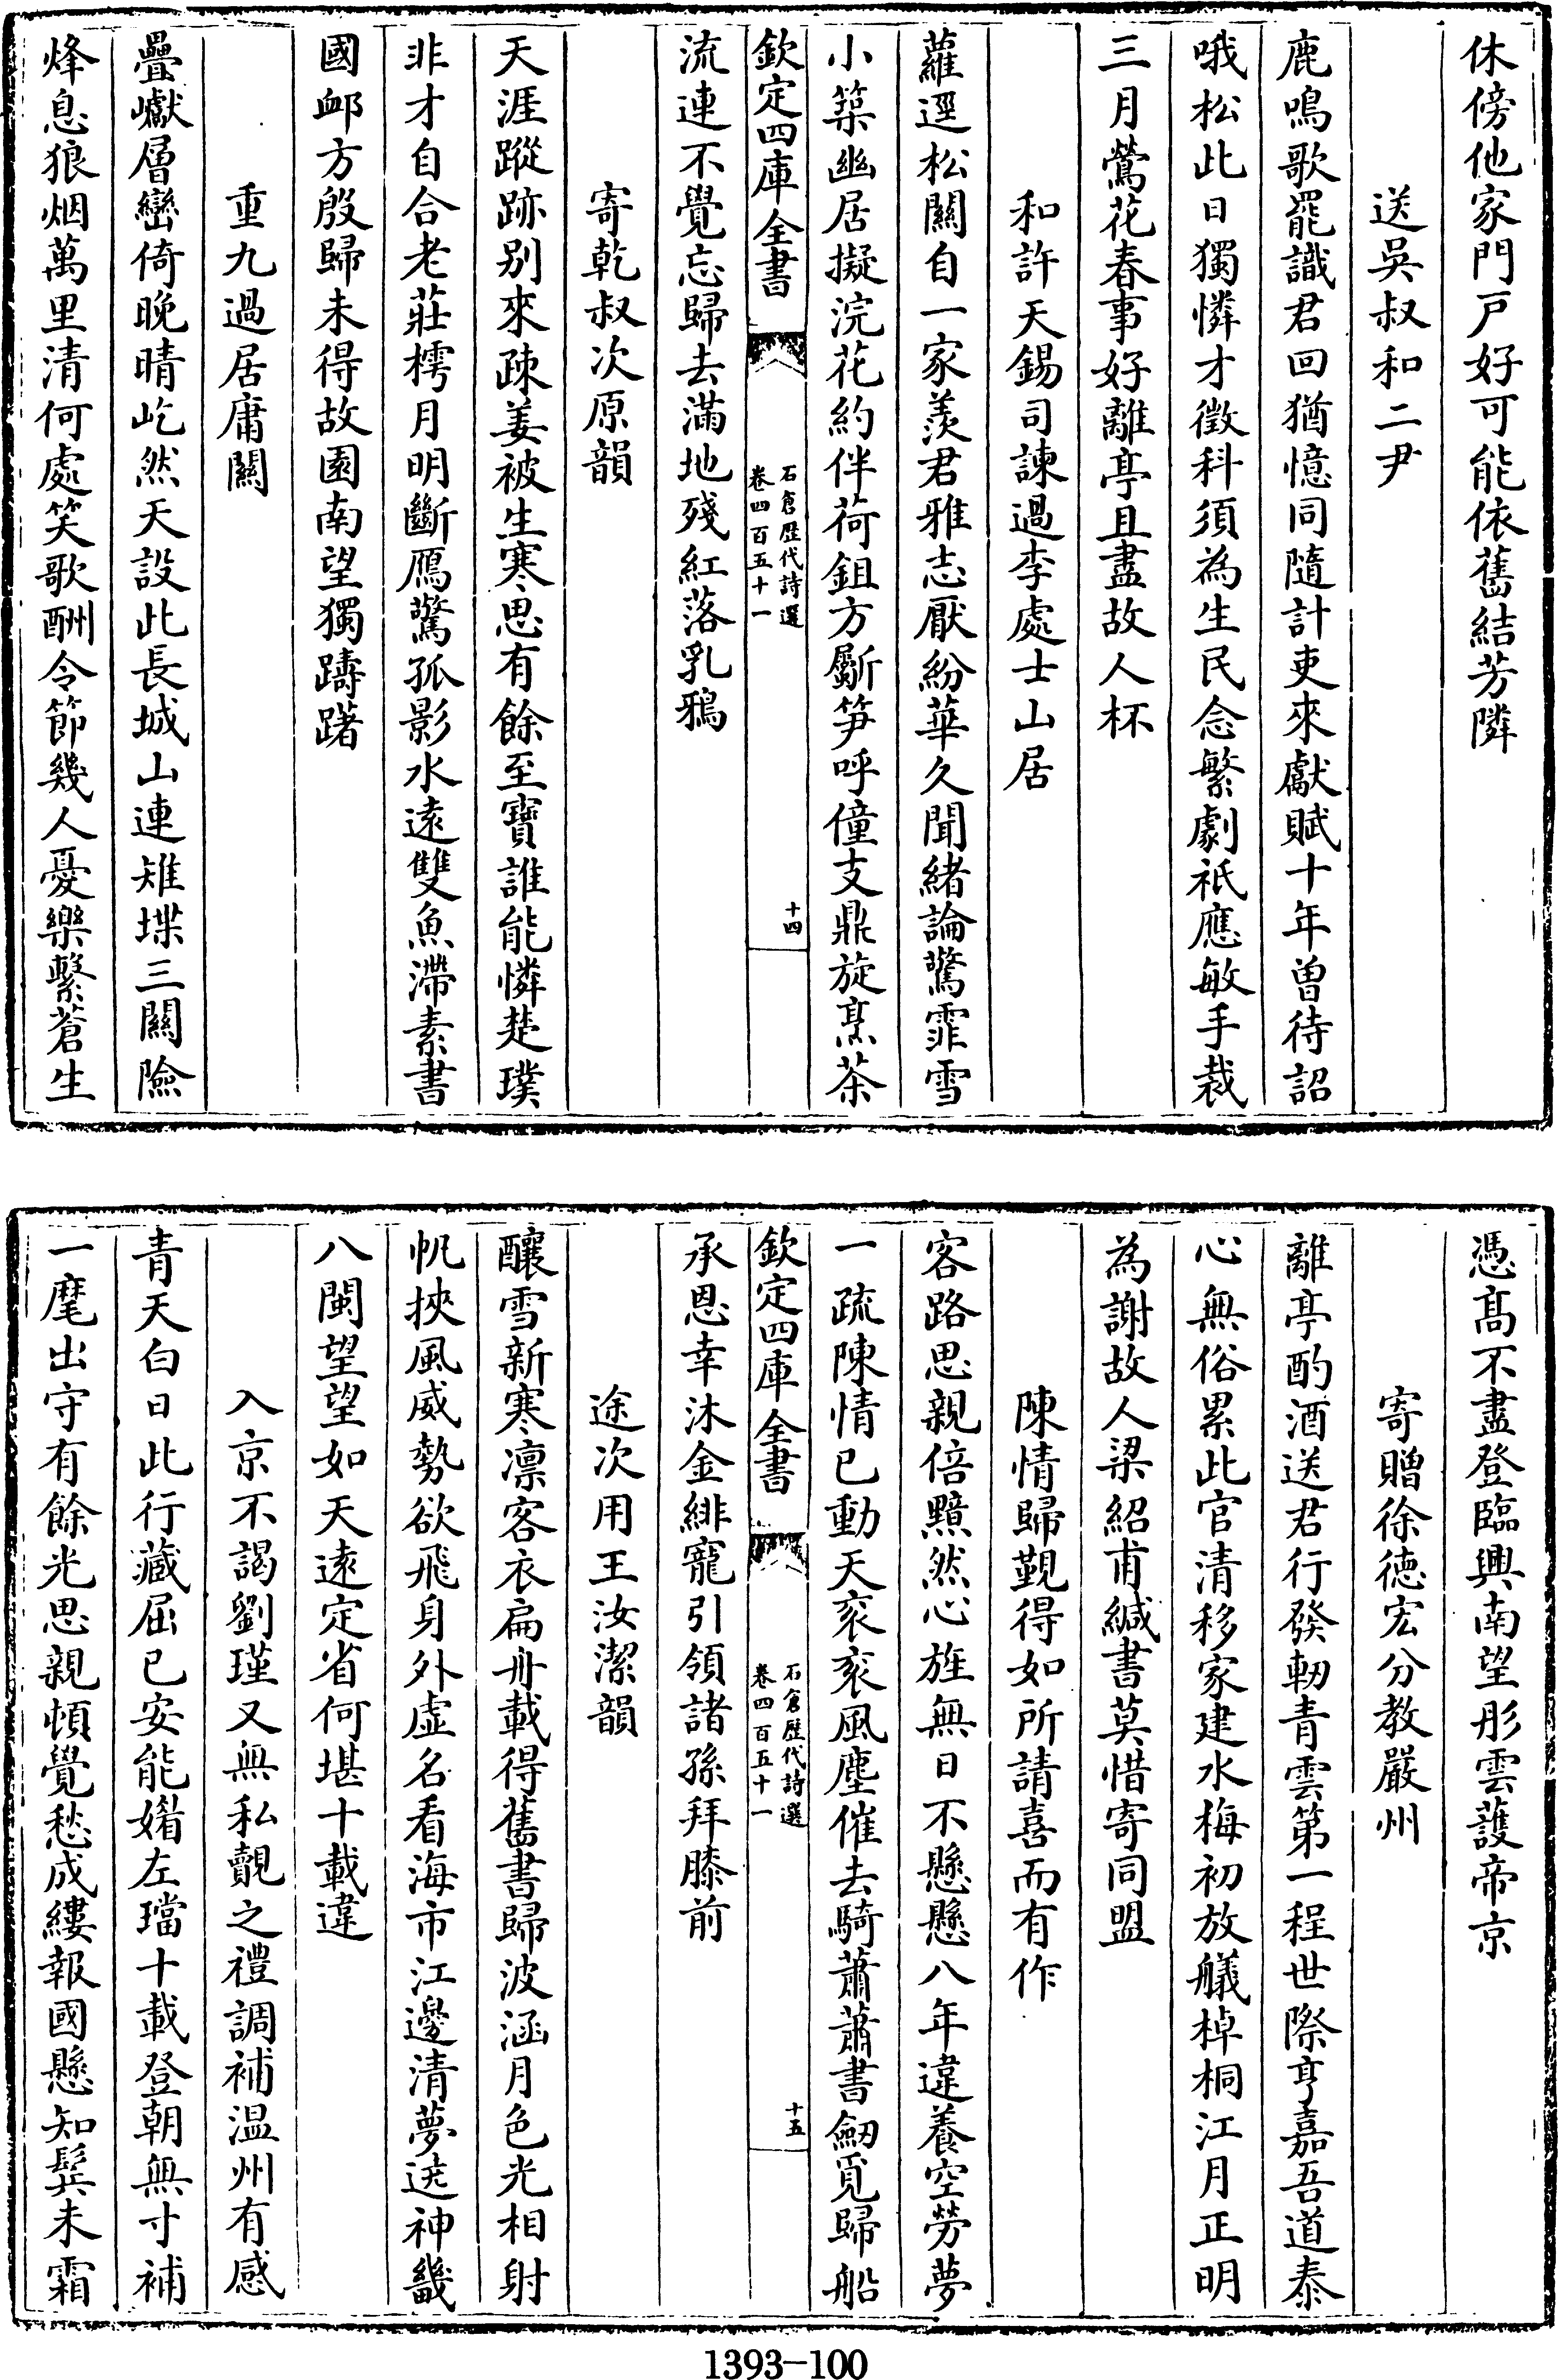 休傍他家門戶好可能依舊結芳隣
送吳叔和二尹
鹿鳴歌罷識君回猶憶同隨計吏來獻賦十年曾待詔
哦松此日獨憐才徵科須為生民念繁劇祇應敏手裁
三月鶯花春事好離亭且盡故人杯
和許天錫司諫過李處士山居
蘿逕松關自一家羨君雅志厭紛華久聞緒論驚霏雪
小築幽居擬浣花約伴荷鉏方斸笋呼僮支鼎旋烹茶
欽定四庫全書
石倉歷代詩選
卷四百五十一
十四
流連不覺忘歸去滿地殘紅落乳鴉
寄乾叔次原韻
天涯蹤跡别來疎姜被生寒思有餘至寶誰能憐楚璞
非才自合老莊樗月明斷鴈驚孤影水遠雙魚滯素書
國邺方殷歸未得故園南望獨躊躇
重九過居庸關
疊巘層巒倚晚晴屹然天設此長城山連雉堞三關險
烽息狼烟萬里清何處笑歌酬令節幾人憂樂繫蒼生
憑高不盡登臨興南望彤雲護帝京
寄贈徐德宏分教嚴州
離亭酌酒送君行發軔青雲第一程世際亨嘉吾道泰
心無俗累此官清移家建水梅初放艤棹桐江月正明
為謝故人梁紹甫緘書莫惜寄同盟
陳情歸覲得如所請喜而有作
客路思親倍黯然心旌無日不懸懸八年違養空勞夢
一疏陳情已動天衮衮風塵催去騎蕭蕭書劒覓歸船
欽定四庫全書
石倉歷代詩選
卷四百五十一
十五
承恩幸沐金緋寵引領諸孫拜膝前
途次用王汝潔韻
釀雪新寒凛客衣扁舟載得舊書歸波涵月色光相射
帆挾風威勢欲飛身外虛名看海市江邊清夢遶神畿
八閩望望如天遠定省何堪十載違
入京不謁劉瑾又無私覿之禮調補温州有感
青天白日此行藏屈已安能媚左璫十載登朝無寸補
一麾出守有餘光思親頓覺愁成縷報國懸知鬂未霜
1393-100